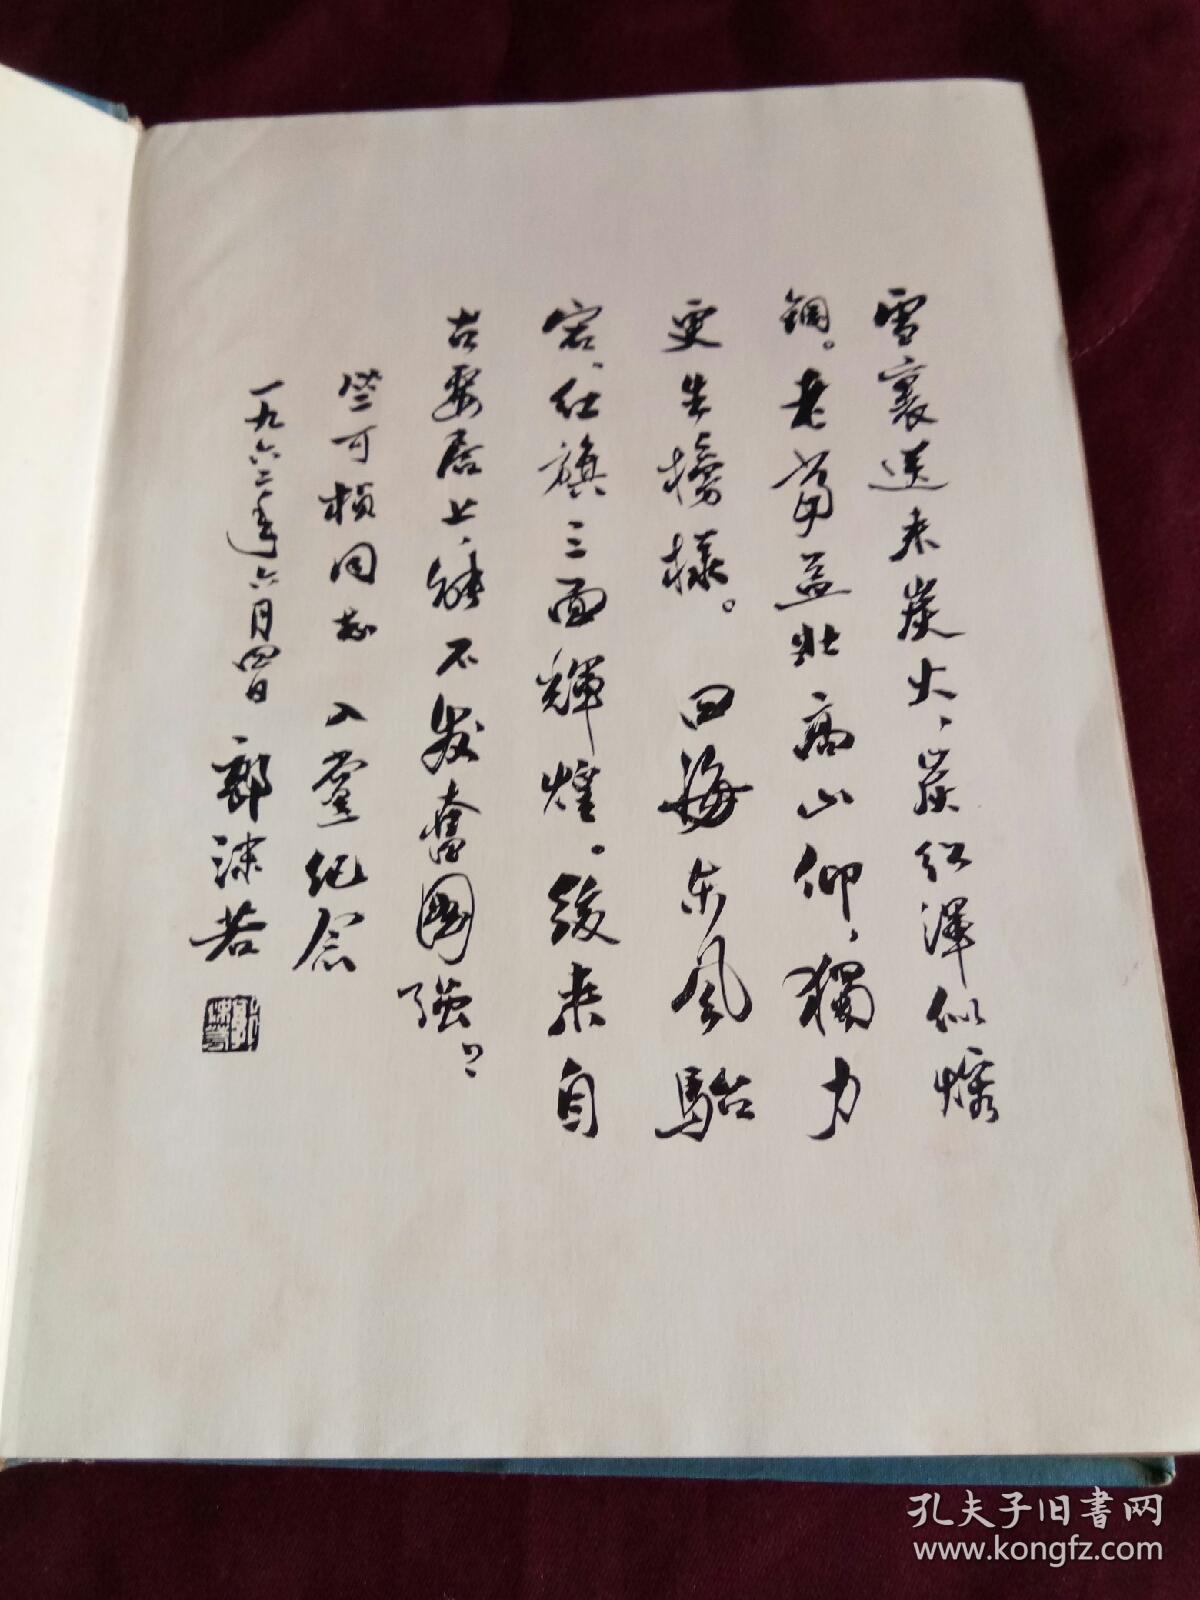 雪裏送来炭火、炭红渾似熔
鋼。老当益壮高山仰、獨力
更生榜樣。 四海东风駘
宕、红旗三面輝煌。後来自
古要居上、能不发奮圖强！
竺可桢同志 入黨纪念
一九六二年六月四日 郭沫若
郭沫若
孔夫子旧书网
www.kongfz.com